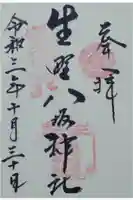 奉拝
生野八坂神社
令和三年十月三十日